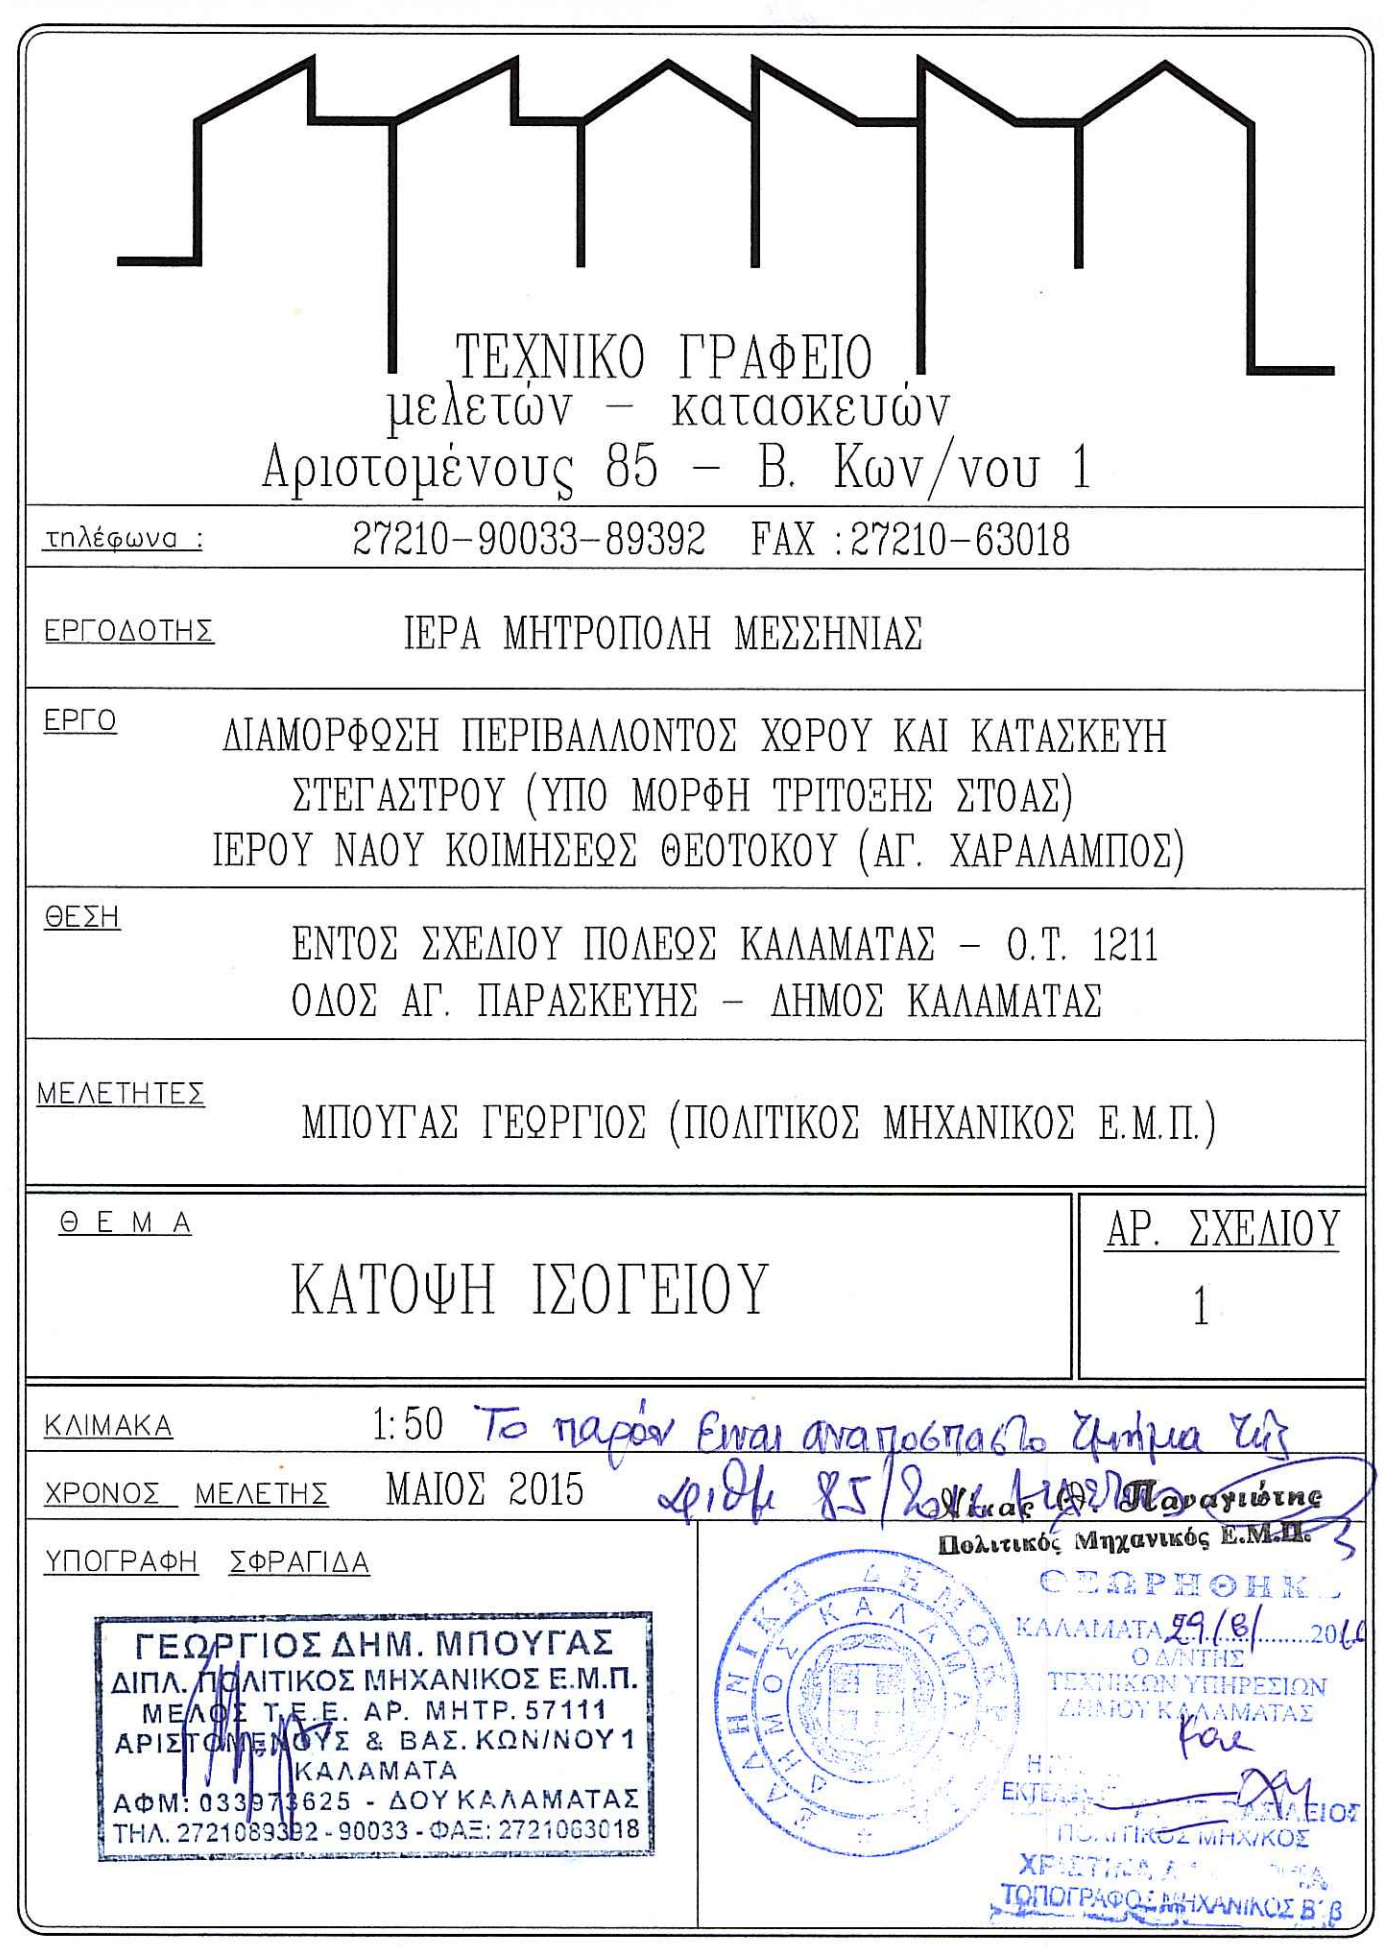 ΤΕΧΝΙΚΟ ΓΡΑΦΕΙΟ
μελετών – κατασκευών
Αριστομένους 85 – Β. Κων/νου 1
τηλέφωνα : 27210-90033-89392 FAX :27210-63018
ΕΡΓΟΔΟΤΗΣ ΙΕΡΑ ΜΗΤΡΟΠΟΛΗ ΜΕΣΣΗΝΙΑΣ
ΕΡΓΟ ΔΙΑΜΟΡΦΩΣΗ ΠΕΡΙΒΑΛΛΟΝΤΟΣ ΧΩΡΟΥ ΚΑΙ ΚΑΤΑΣΚΕΥΗ
ΣΤΕΓΑΣΤΡΟΥ (ΥΠΟ ΜΟΡΦΗ ΤΡΙΤΟΞΗΣ ΣΤΟΑΣ)
ΙΕΡΟΥ ΝΑΟΥ ΚΟΙΜΗΣΕΩΣ ΘΕΟΤΟΚΟΥ (ΑΓ. ΧΑΡΑΛΑΜΠΟΣ)
ΘΕΣΗ
ΕΝΤΟΣ ΣΧΕΔΙΟΥ ΠΟΛΕΩΣ ΚΑΛΑΜΑΤΑΣ – Ο.Τ. 1211
ΟΔΟΣ ΑΓ. ΠΑΡΑΣΚΕΥΗΣ – ΔΗΜΟΣ ΚΑΛΑΜΑΤΑΣ
ΜΕΛΕΤΗΤΕΣ
ΜΠΟΥΓΑΣ ΓΕΩΡΓΙΟΣ (ΠΟΛΙΤΙΚΟΣ ΜΗΧΑΝΙΚΟΣ Ε.Μ.Π.)
Θ Ε Μ Α
ΚΑΤΟΨΗ ΙΣΟΓΕΙΟΥ
ΑΡ. ΣΧΕΔΙΟΥ
1
ΚΛΙΜΑΚΑ 1:50 Το παρόν ειναι αναποσπαστο τμήμα της
ΧΡΟΝΟΣ ΜΕΛΕΤΗΣ ΜΑΙΟΣ 2015 αριθμ 85/
Παναγιώτης
Πολιτικός Μηχανικός Ε.Μ.Π.
ΥΠΟΓΡΑΦΗ ΣΦΡΑΓΙΔΑ
ΓΕΩΡΓΙΟΣ ΔΗΜ. ΜΠΟΥΓΑΣ
ΔΙΠΛ. ΠΟΛΙΤΙΚΟΣ ΜΗΧΑΝΙΚΟΣ Ε.Μ.Π.
ΜΕΛΟΣ Τ.Ε.Ε. ΑΡ. ΜΗΤΡ. 57111
ΑΡΙΣΤΟΜΕΝΟΥΣ & ΒΑΣ. ΚΩΝ/ΝΟΥ 1
ΚΑΛΑΜΑΤΑ
ΑΦΜ: 033973625 - ΔΟΥ ΚΑΛΑΜΑΤΑΣ
ΤΗΛ. 2721089392 - 90033 - ΦΑΞ: 2721063018
ΕΛΛΗΝΙΚΗ ΔΗΜΟΚΡΑΤΙΑ
ΔΗΜΟΣ ΚΑΛΑΜΑΤΑΣ
ΘΕΩΡΗΘΗΚΕ
ΚΑΛΑΜΑΤΑ 29/8/2016
Ο Δ/ΝΤΗΣ
ΤΕΧΝΙΚΩΝ ΥΠΗΡΕΣΙΩΝ
ΔΗΜΟΥ ΚΑΛΑΜΑΤΑΣ
ΠΟΛΙΤΙΚΟΣ ΜΗΧ/ΚΟΣ
ΤΟΠΟΓΡΑΦΟΣ ΜΗΧΑΝΙΚΟΣ Β΄β